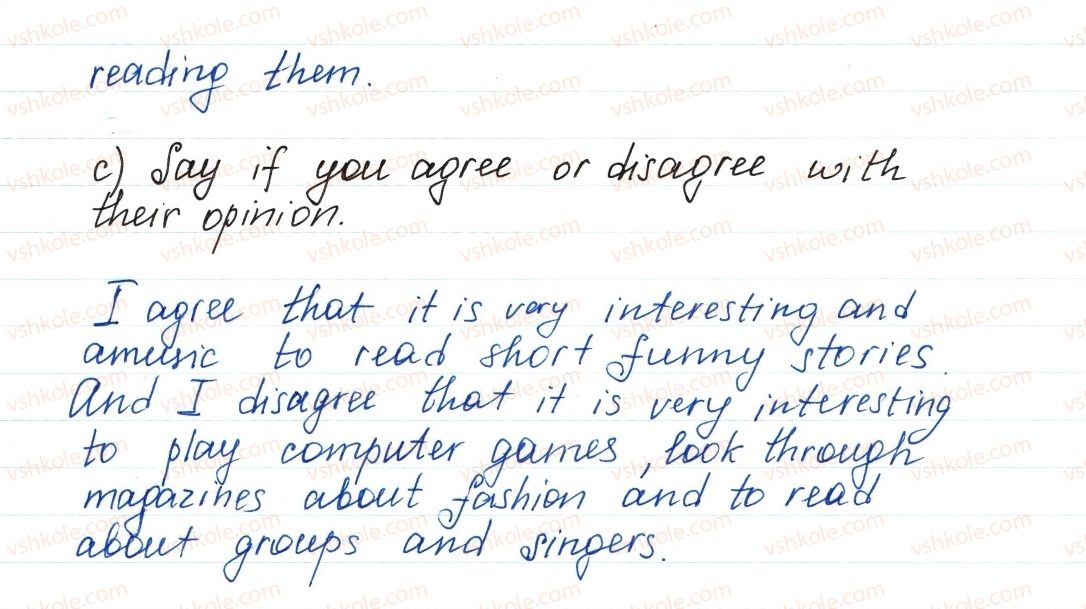 reading them.
c) Say if you agree or disagree with
their opinion.
I agree that it is very interesting and
amusic to read short funny stories.
And I disagree that it is very interesting
to play computer games, look through
magazines about fashion and to read
about groups and singers.